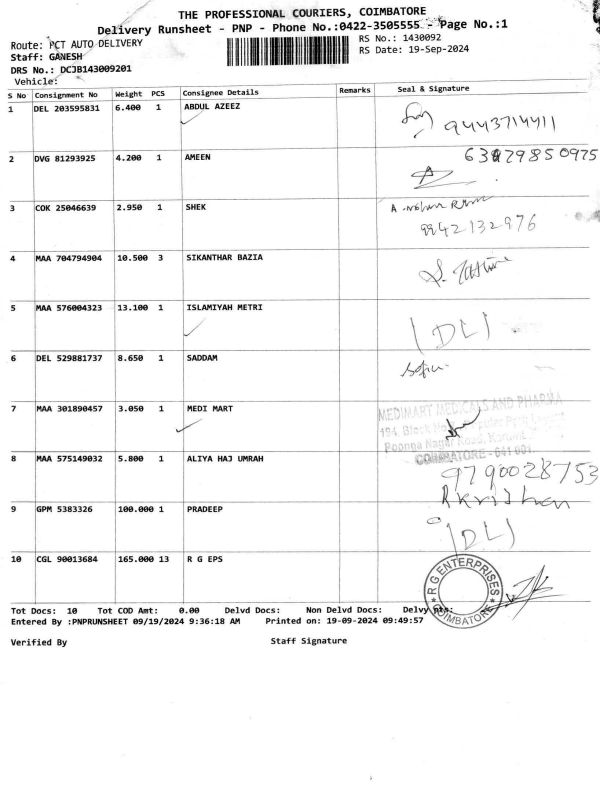 THE PROFESSIONAL COURIERS, COIMBATORE
Delivery Runsheet - PNP - Phone No.:0422-3505555 - Page No.:1
Route: PCT AUTO DELIVERY
RS No.: 1430092
Staff: GANESH
RS Date: 19-Sep-2024
DRS No.: DCJB143009201
Vehicle:
S No Consignment No Weight PCS Consignee Details Remarks Seal & Signature
1 DEL 203595831 6.400 1 ABDUL AZEEZ
9443714411
2 DVG 81293925 4.200 1 AMEEN
3 COK 25046639 2.950 1 SHEK
9942132976
4 MAA 704794904 10.500 3 SIKANTHAR BAZIA
5 MAA 576004323 13.100 1 ISLAMIYAH METRI
(DL)
6 DEL 529881737 8.650 1 SADDAM
7 MAA 301890457 3.050 1 MEDI MART
MEDIMART MEDICALS AND PHARMA
194, Block No
Poonga Nagar Road,
COIMBATORE - 641 001
8 MAA 575149032 5.800 1 ALIYA HAJ UMRAH
9790028753
9 GPM 5383326 100.000 1 PRADEEP
(DL)
10 CGL 90013684 165.000 13 R G EPS
R G ENTERPRISES
COIMBATORE
Tot Docs: 10 Tot COD Amt: 0.00 Delvd Docs: Non Delvd Docs: Delvy pts:
Entered By :PNPRUNSHEET 09/19/2024 9:36:18 AM Printed on: 19-09-2024 09:49:57
Verified By Staff Signature